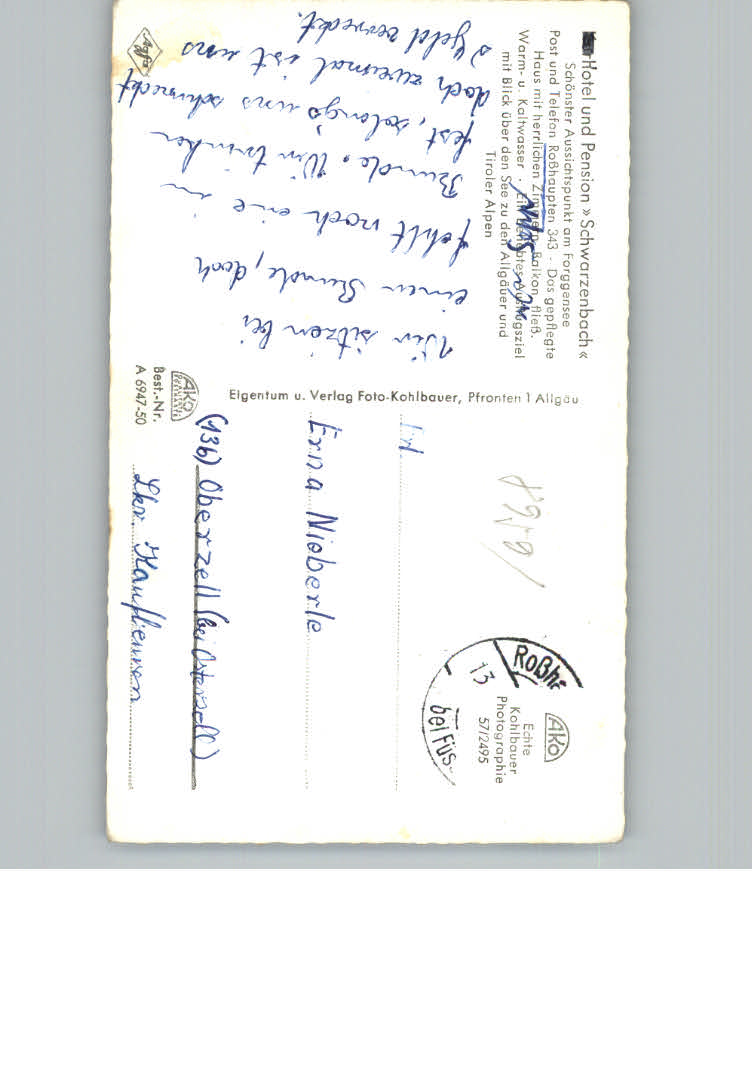 Hotel und Pension »Schwarzenbach«
Schönster Aussichtspunkt am Forggensee
Post und Telefon Roßhaupten 343 · Das gepflegte
Haus mit herrlichen Zimmern, Balkon, fließ.
Warm- u. Kaltwasser · Ein beliebtes Ausflugsziel
mit Blick über den See zu den Allgäuer und
Tiroler Alpen
Wir sitzen bei
einer Runde, doch
fehlt noch eine im
Bunde. Wir trinken
fest, solang's uns schmeckt
doch zweimal ist uns
's Geld verreckt.
Agfa
Eigentum u. Verlag Foto-Kohlbauer, Pfronten 1 Allgäu
AKO
Best.-Nr.
A 6947-50
AKO
Echte
Kohlbauer
Photographie
57/2495
Roßh
13
bei Füs
Frl.
Erna Nieberle
(13b) Oberzell (bei Osterzell)
Lkr. Kaufbeuren